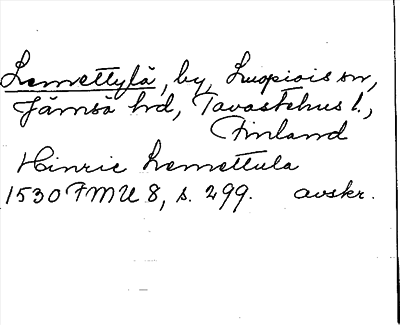 Lemettylä, by, Luopiois sn,
Jämsä hd, Tavastehus l.,
Finland
Hinric Lemettula
1530 FMU 8, s. 299. avskr.